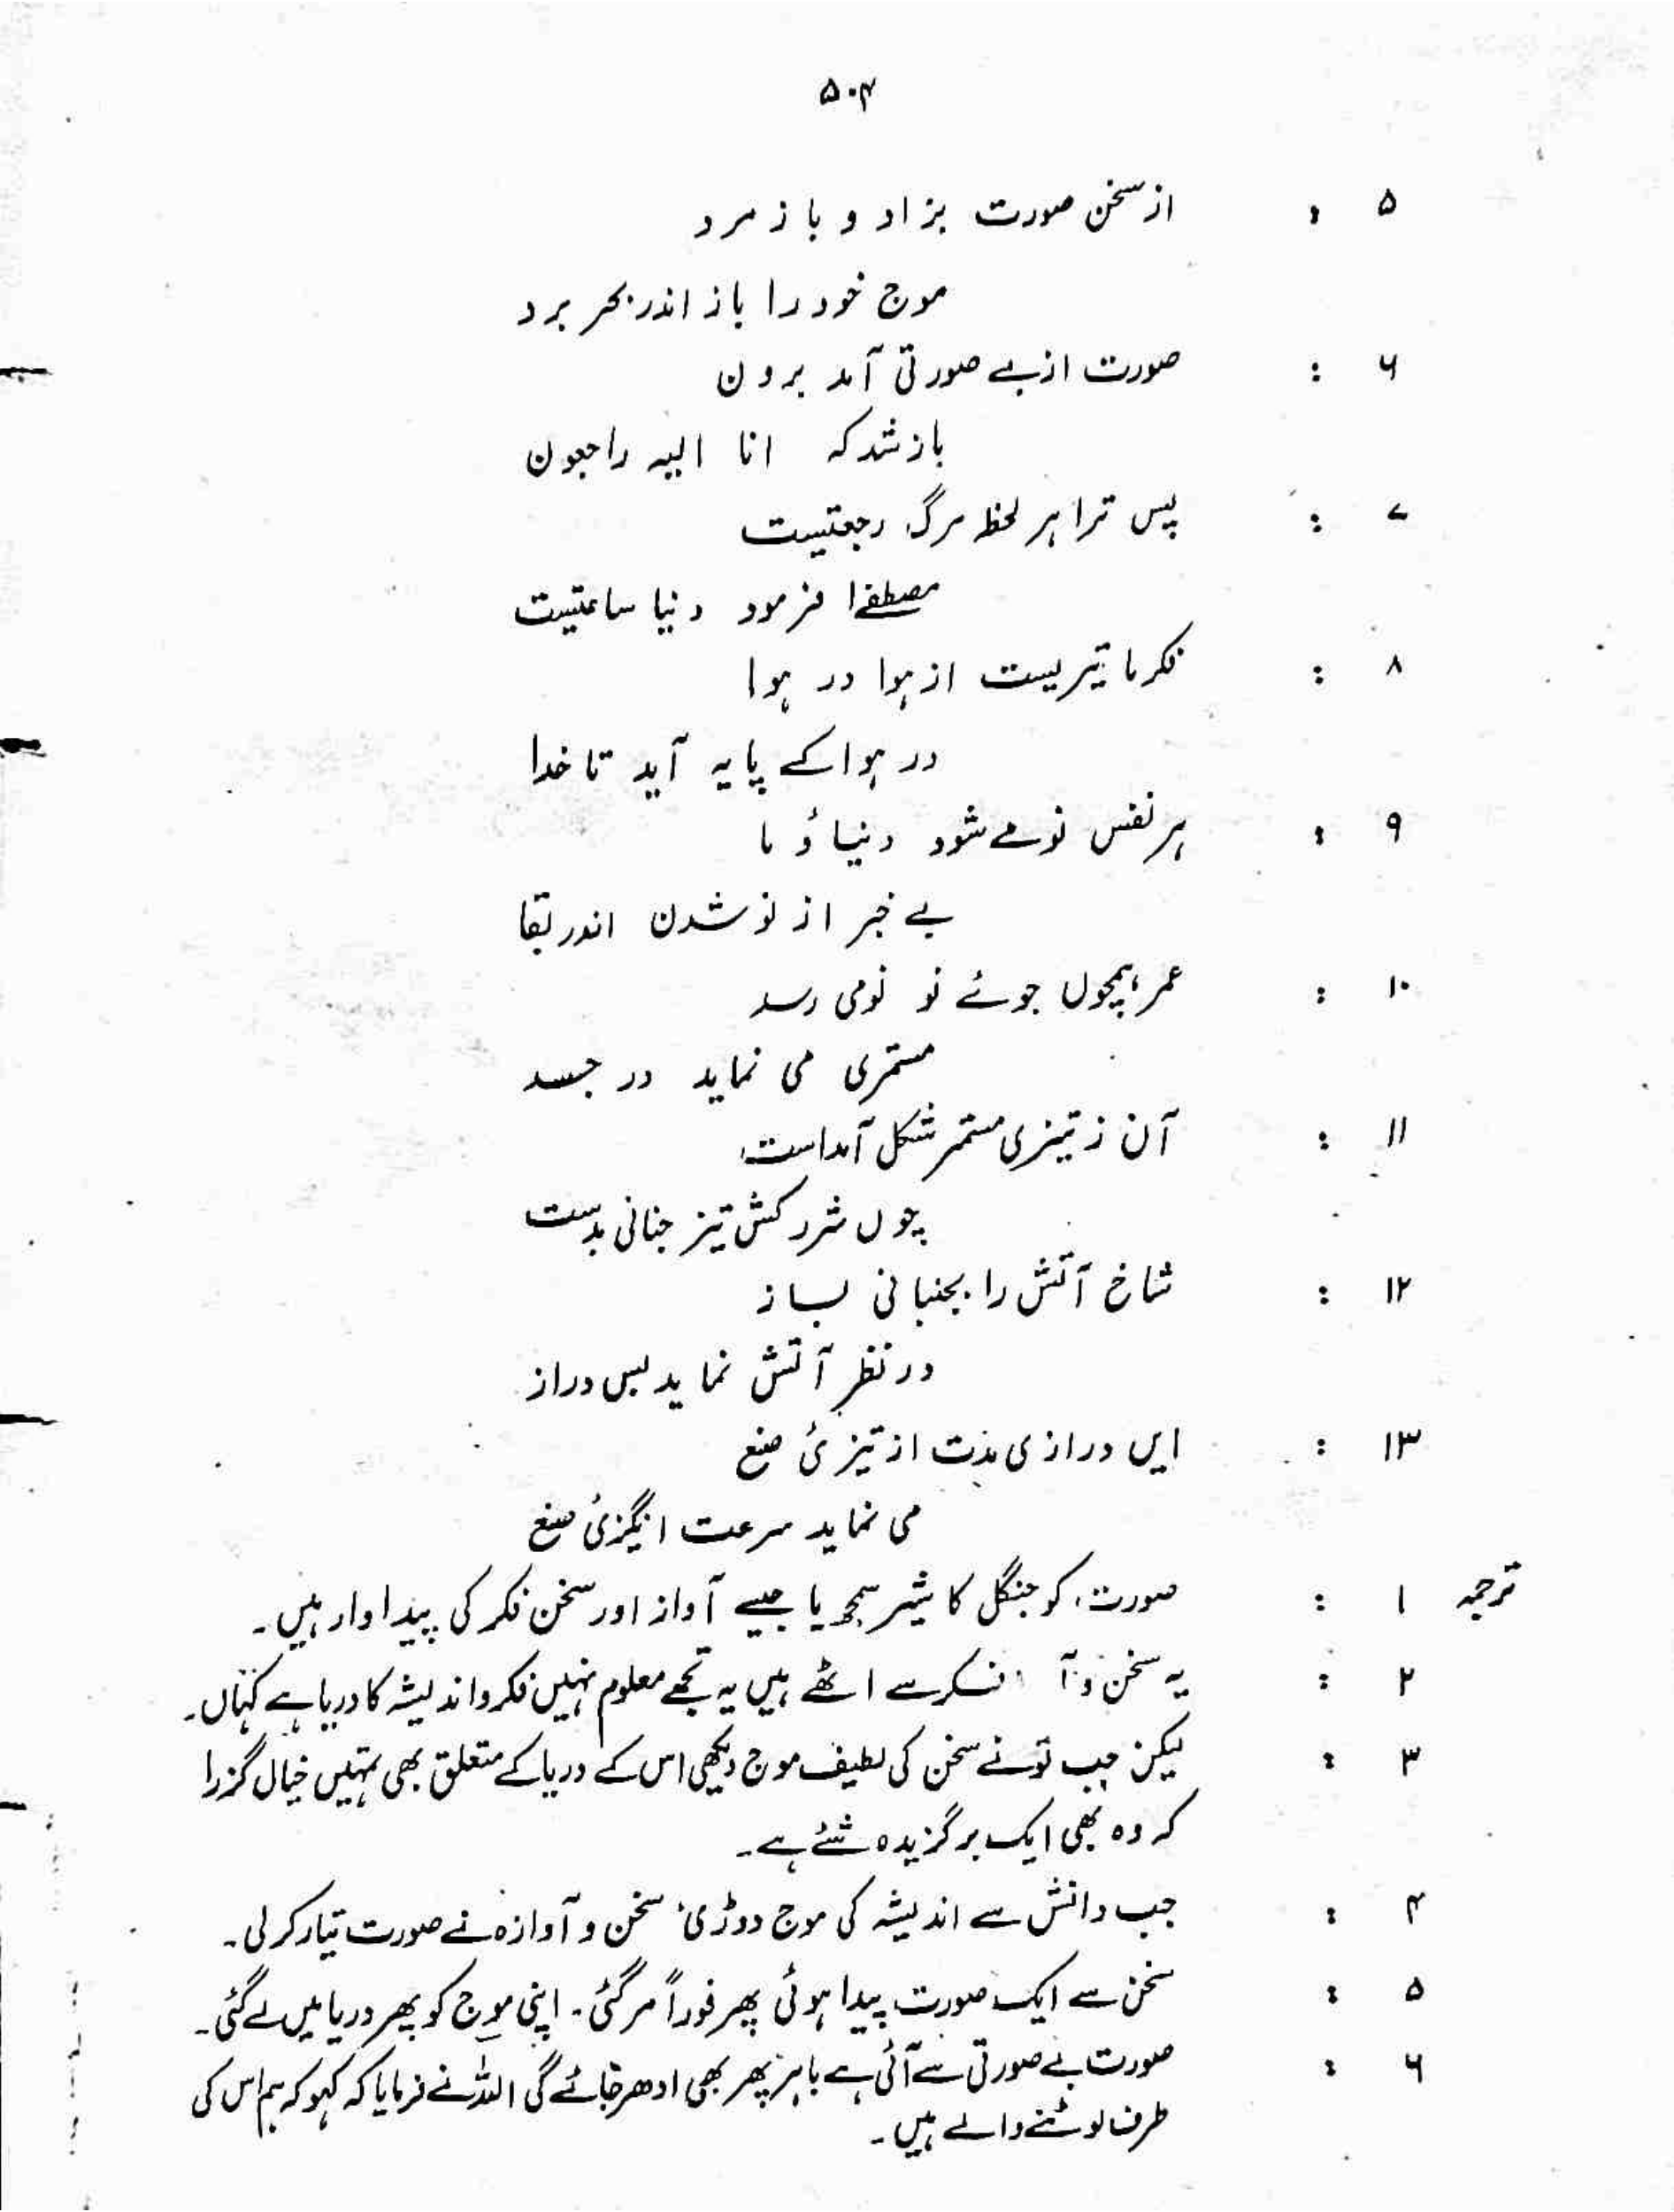 ۵۰۴
۵ : از سخن صورت بزاد و باز مرد
موج خود را باز اندر بحر برد
۶ : صورت از بے صورتی آمد برون
باز شد که انا الیہ راجعون
۷ : پس ترا ہر لحظہ مرگ رجعتیست
مصطفےٰ فرمود دنیا ساعتیست
۸ : فکر ما تیریست از ہوا در ہوا
در ہوا کے پایہ آید تا خدا
۹ : ہر نفس نو مے شود دنیا وُ ما
بے خبر از نو شدن اندر بقا
۱۰ : عمر ہمچوں جوئے نو نو می رسد
مستمری می نماید در جسد
۱۱ : آن ز تیزی مستمر شکل آمداست
چوں شرر کش تیز جنبانی بدست
۱۲ : شاخ آتش را بجنبانی بساز
در نظر آتش نماید بس دراز
۱۳ : ایں درازی مدت از تیزیٔ صنع
می نماید سرعت انگیزیٔ صنع
ترجمہ ۱ : صورت، کو جنگل کا شیر سمجھ یا جیسے آواز اور سخن فکر کی پیداوار ہیں۔
۲ : یہ سخن و آ فکر سے اٹھے ہیں یہ تجھے معلوم نہیں فکر و اندیشہ کا دریا ہے کہاں۔
۳ : لیکن جب تو نے سخن کی لطیف موج دیکھی اس کے دریا کے متعلق بھی تمہیں خیال گزرا
کہ وہ بھی ایک برگزیدہ شئے ہے۔
۴ : جب دانش سے اندیشہ کی موج دوڑی، سخن و آوازہ نے صورت تیار کر لی۔
۵ : سخن سے ایک صورت پیدا ہوئی پھر فوراً مر گئی۔ اپنی موج کو پھر دریا میں لے گئی۔
۶ : صورت بے صورتی سے آئی ہے باہر پھر بھی ادھر جائے گی اللہ نے فرمایا کہ کہو کہ ہم اس کی
طرف لوٹنے والے ہیں۔